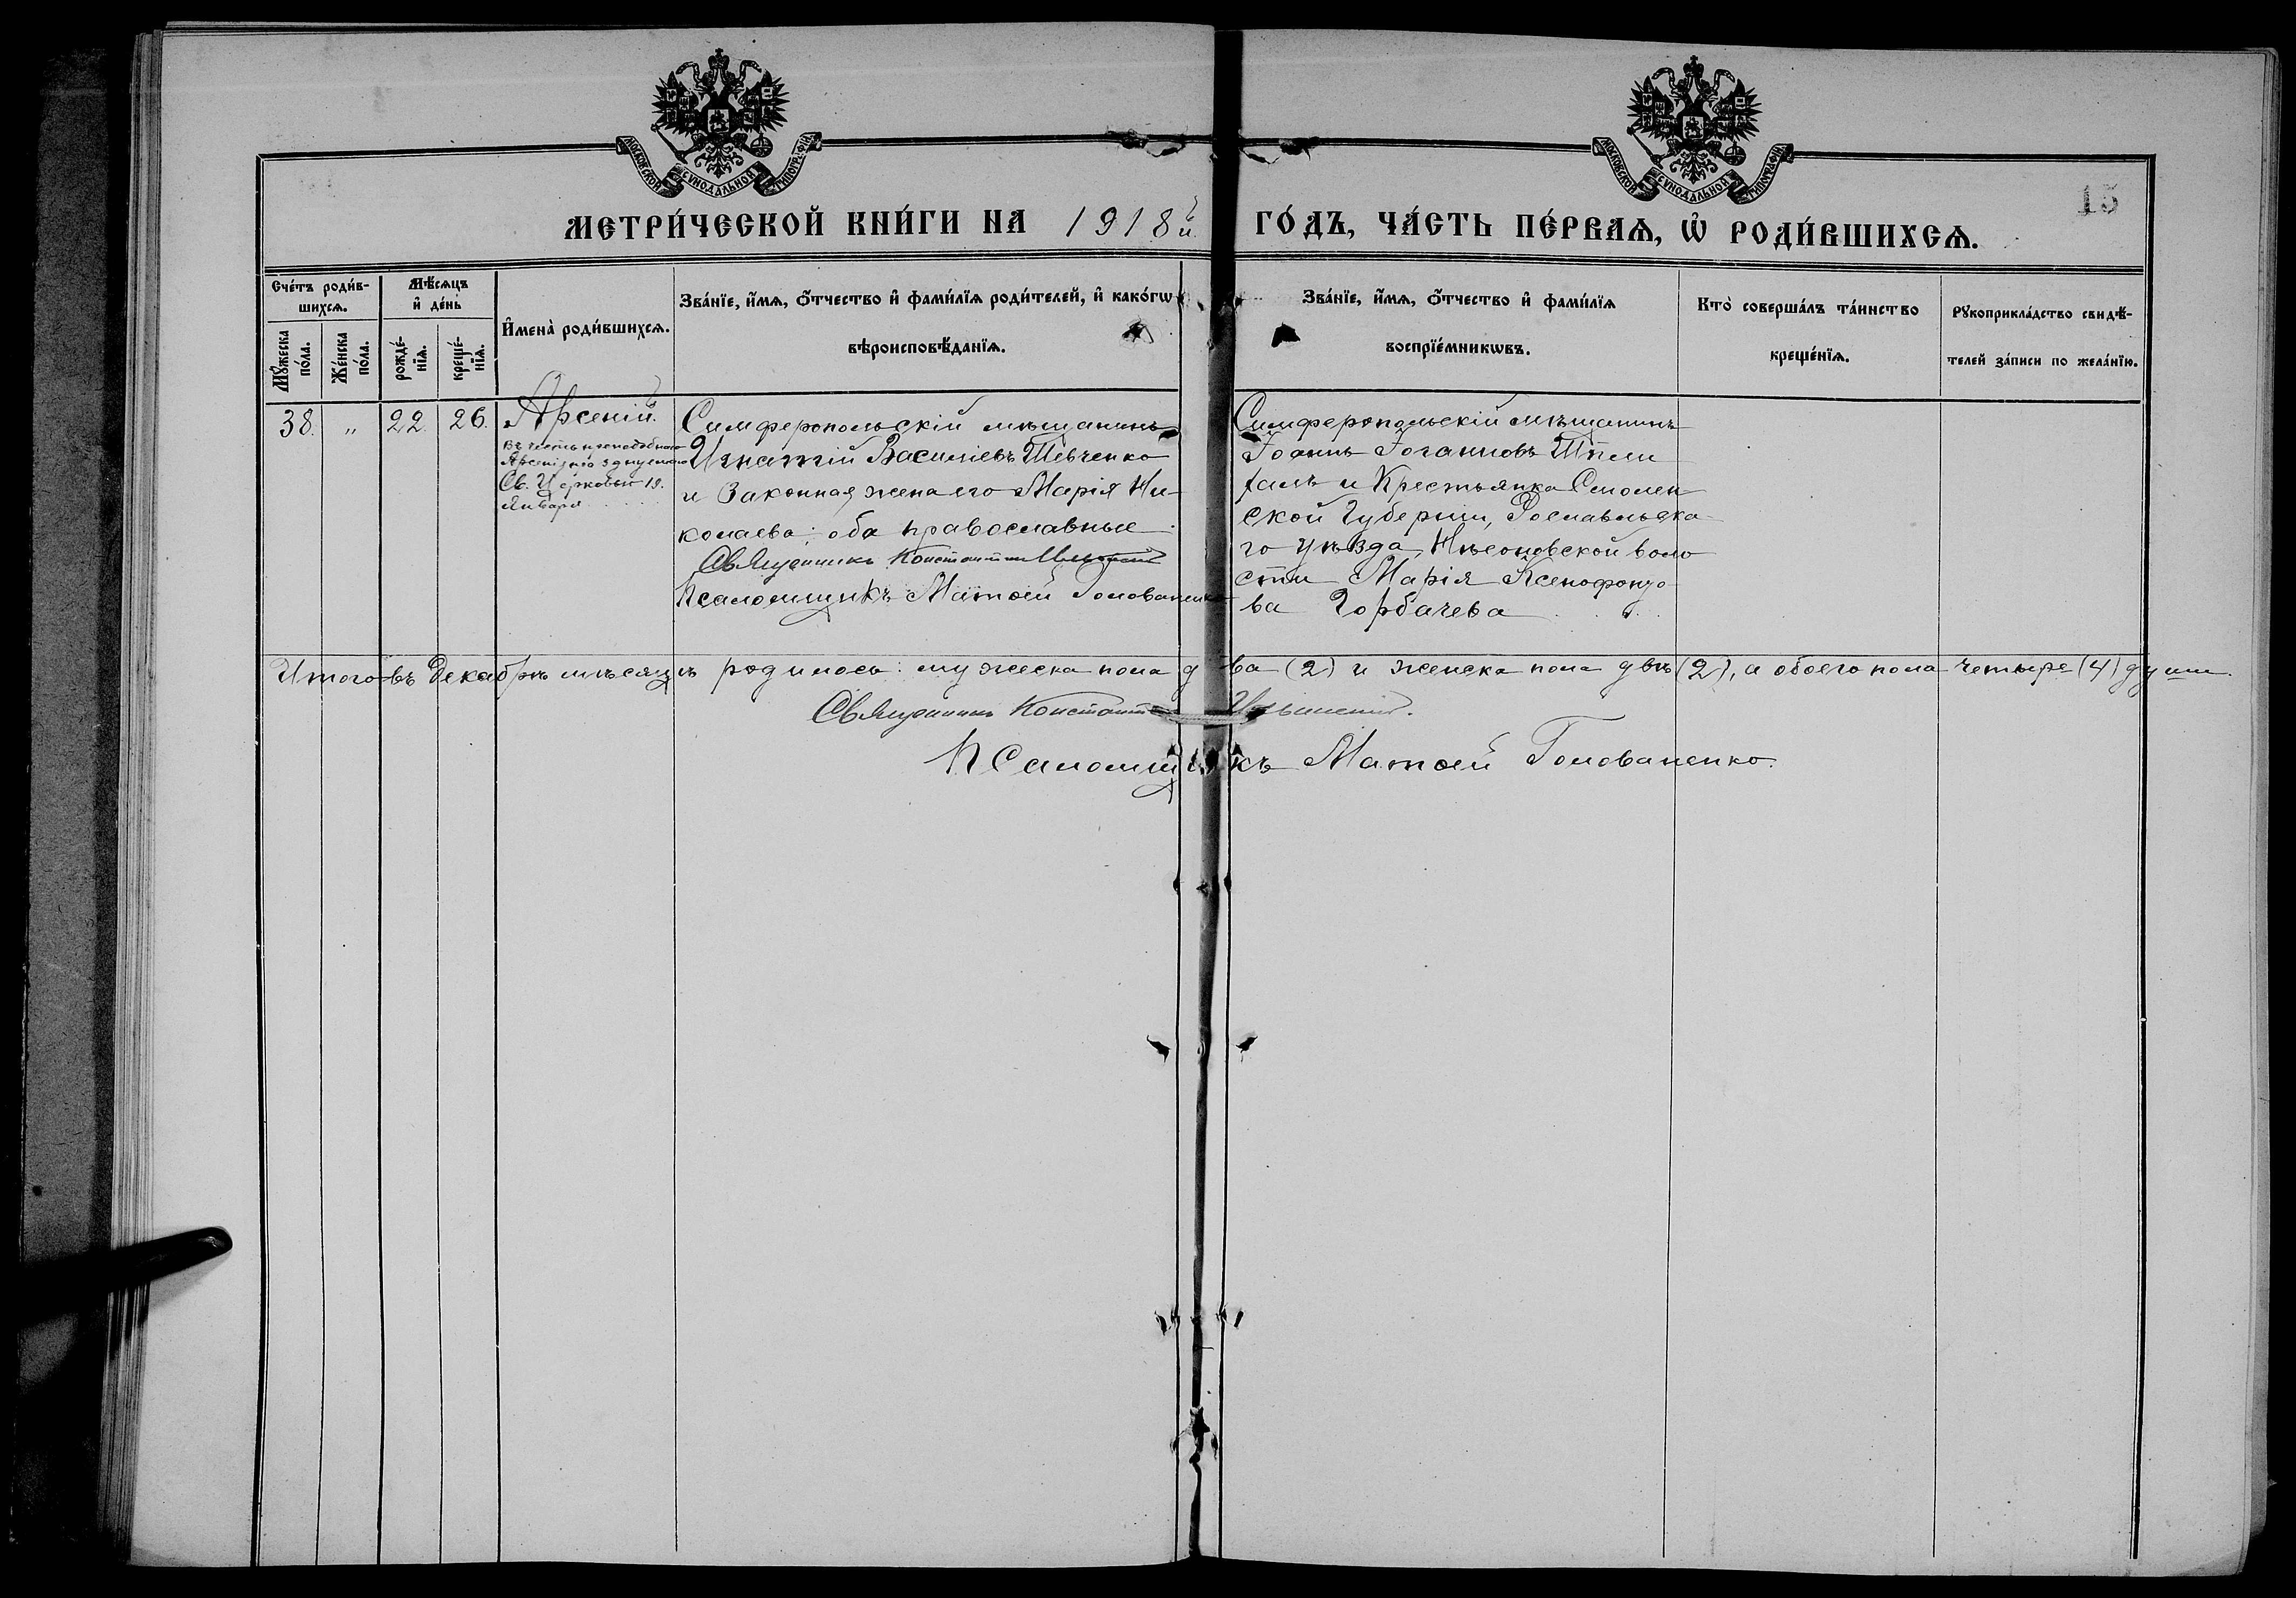 МОСКОВСКОЙ СѴНОДАЛЬНОЙ ТИПОГРАФІИ
МОСКОВСКОЙ СѴНОДАЛЬНОЙ ТИПОГРАФІИ
15
МЕТРИ́ЧЕСКОЙ КНИ́ГИ НА 1918й ГО́ДЪ, ЧА́СТЬ ПЕ́РВАѦ, Ѡ҆ РОДИ́ВШИХСѦ.
Сче́тъ роди́в-
шихсѧ.
Мꙋ́жеска по́ла.
Же́нска по́ла.
Мѣ́сѧцъ
и҆ де́нь
рожде́-
нїѧ.
креще́-
нїѧ.
И҆мена̀ роди́вшихсѧ.
Зва́нїе, и҆́мѧ, ѻ҆́тчество и҆ фами́лїѧ роди́телей, и҆ како́гѡ
вѣроисповѣ́данїѧ.
Зва́нїе, и҆́мѧ, ѻ҆́тчество и҆ фами́лїѧ
воспрїе́мникѡвъ.
Кто̀ соверша́лъ та́инство
креще́нїѧ.
Рꙋкоприкла́дство свидѣ́-
телей за́писи по жела́нїю.
38. „ 22. 26. Арсеній.
Въ честь преподобнаго
Св. Церковью 19.
Января
Симферопольскій мѣщанинъ
Игнатій Василіевъ Шевченко
и законная жена его Марія Ни-
колаева; оба православные
Священникъ Константинъ
Псаломщикъ Матѳей Голованенко
Симферопольскій мѣщанинъ
Іоаннъ Іоганновъ
и Крестьянка Смолен
ской Губерніи, Рославльска
го уѣзда, воло
сти Марія Ксенофонто
ва Горбачева
Итого въ Декабрѣ мѣсяцѣ родилось: мужеска пола два (2) и женска пола двѣ (2), а обоего пола четыре (4) души.
Священникъ Константинъ
Псаломщикъ Матѳей Голованенко.